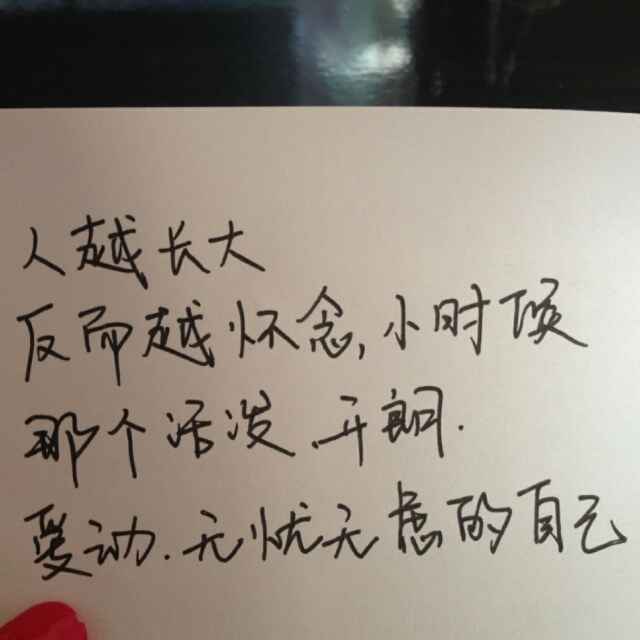 人越长大
反而越怀念,小时候
那个活泼.开朗.
爱动.无忧无虑的自己